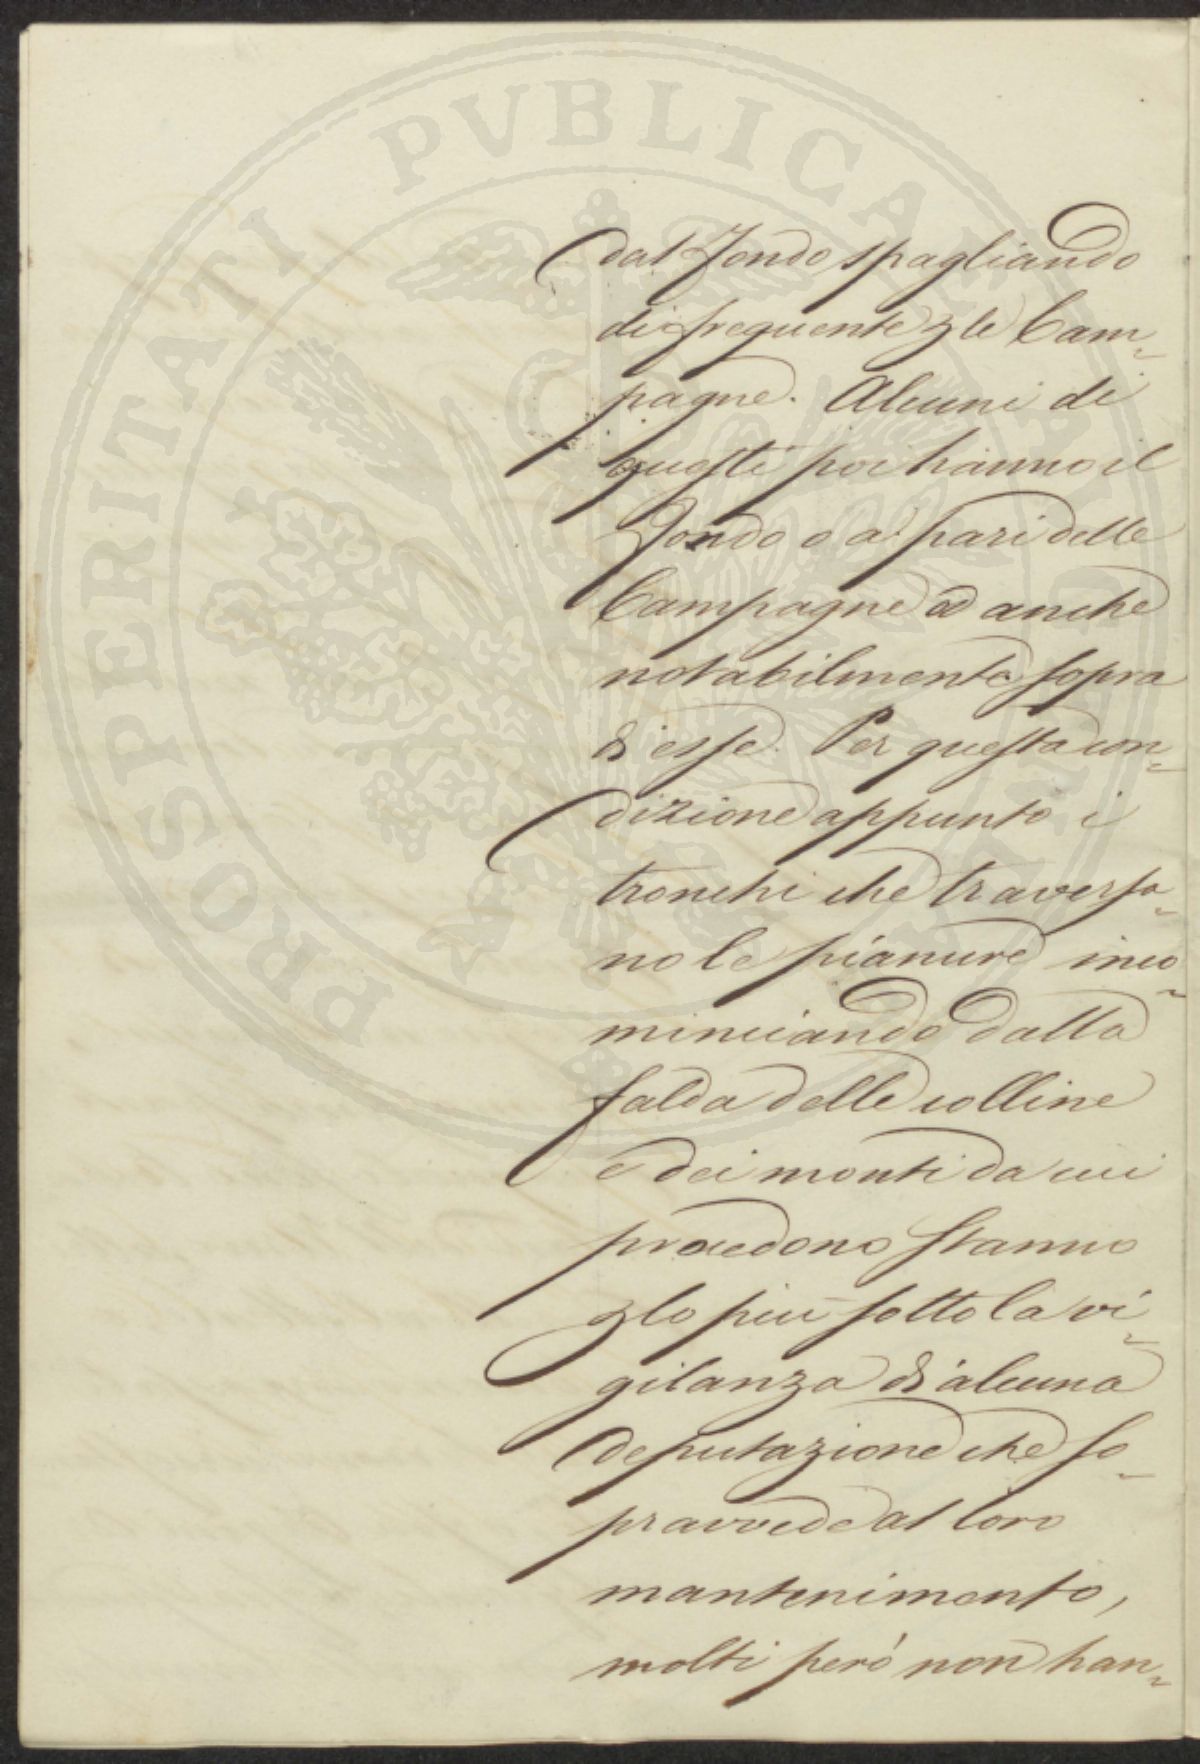 PROSPERITATI PVBLICAE
dal Fondo spagliando
di frequente per le Cam-
pagne. Alcuni di
questi poi hanno il
Fondo o a pari delle
Campagne od anche
notabilmente sopra
di esse. Per questa con-
dizione appunto i
tronchi che traversa-
no le pianure inco-
minciando dalla
falda delle colline
e dei monti da cui
procedono stanno
per lo più sotto la vi-
gilanza di alcuna
deputazione che so-
pravvede al loro
mantenimento,
molti però non han-